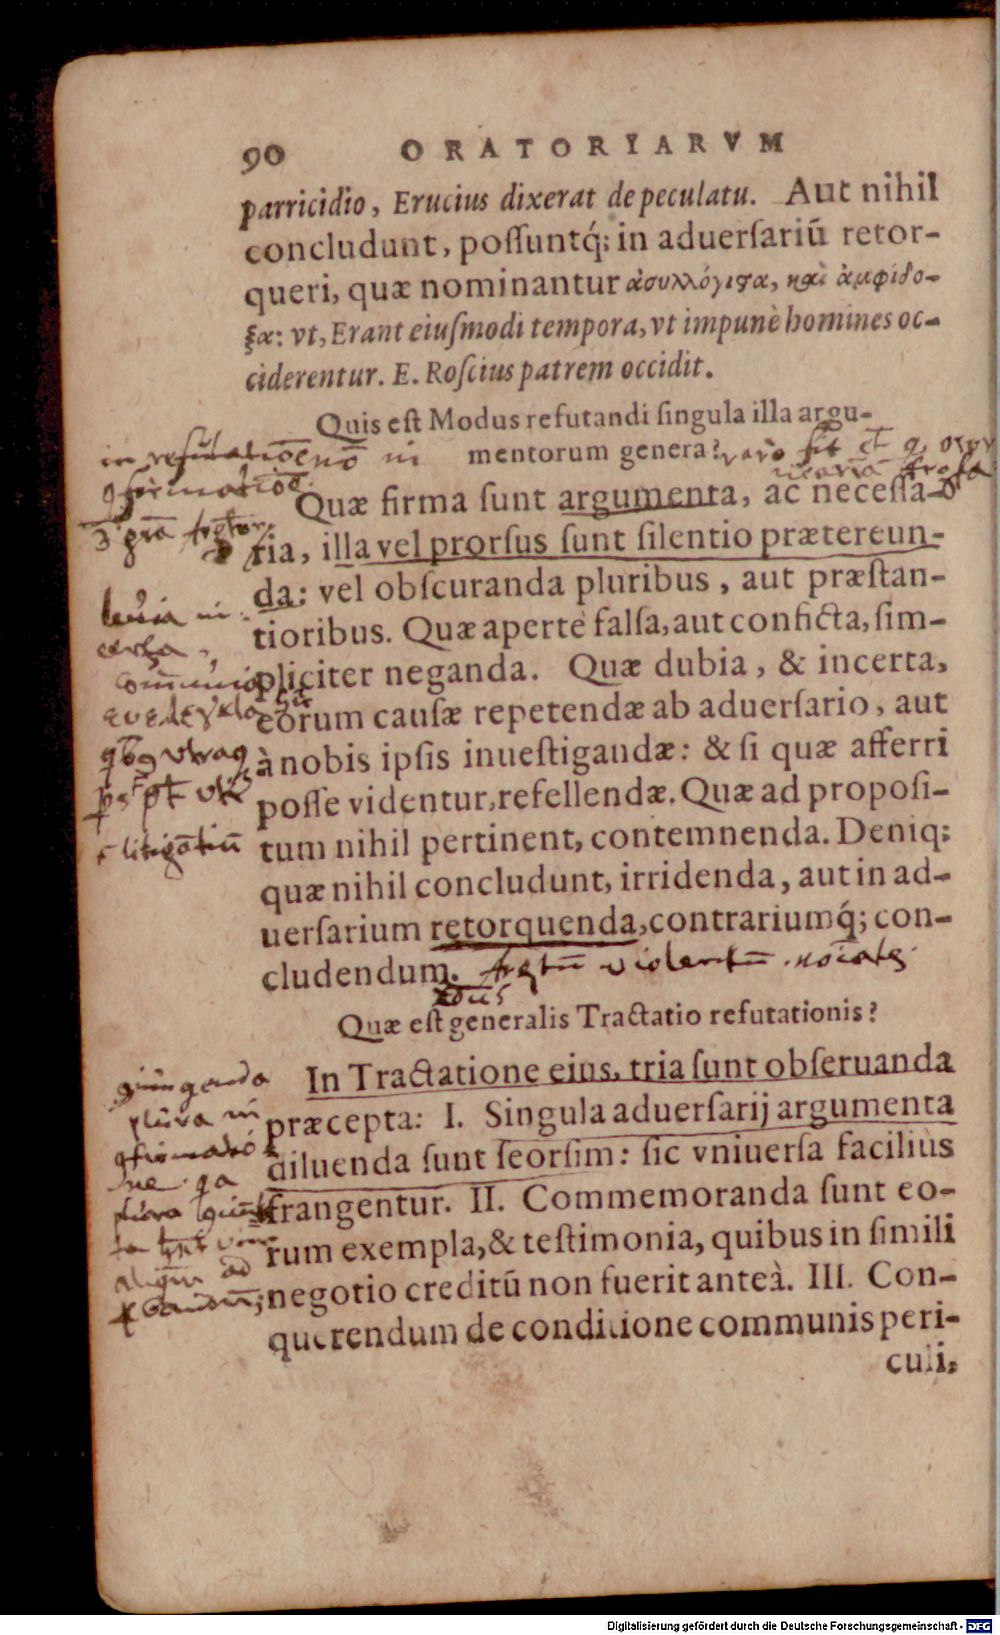 90 ORATORIARVM
parricidio, Erucius dixerat de peculatu. Aut nihil
concludunt, poſſuntq́; in aduerſariũ retor-
queri, quæ nominantur ἀσυλλόγιϛα, καὶ ἀμφίδο-
ξα: vt, Erant eiuſmodi tempora, vt impunè homines oc-
ciderentur. E. Roſcius patrem occidit.
Quis eſt Modus refutandi ſingula illa argu-
mentorum genera?
in refutatiõe nõ
Quæ firma ſunt argumenta, ac neceſſa-
ria, illa vel prorſus ſunt ſilentio prætereun-
da: vel obſcuranda pluribus, aut præſtan-
tioribus. Quæ apertè falſa, aut conficta, ſim-
pliciter neganda. Quæ dubia, & incerta,
eorum cauſæ repetendæ ab aduerſario, aut
à nobis ipſis inueſtigandæ: & ſi quæ afferri
poſſe videntur, refellendæ. Quæ ad propoſi-
litigãtiũ
tum nihil pertinent, contemnenda. Deniq;
quæ nihil concludunt, irridenda, aut in ad-
uerſarium retorquenda, contrariumq́; con-
cludendum. violentũ
Quæ eſt generalis Tractatio refutationis?
In Tractatione eius, tria ſunt obſeruanda
plura in
præcepta: I. Singula aduerſarij argumenta
diluenda ſunt ſeorſim: ſic vniuerſa faciliùs
frangentur. II. Commemoranda ſunt eo-
rum exempla, & teſtimonia, quibus in ſimili
negotio creditũ non fuerit anteà. III. Con-
querendum de conditione communis peri-
culi,
Digitalisierung gefördert durch die Deutsche Forschungsgemeinschaft - DFG